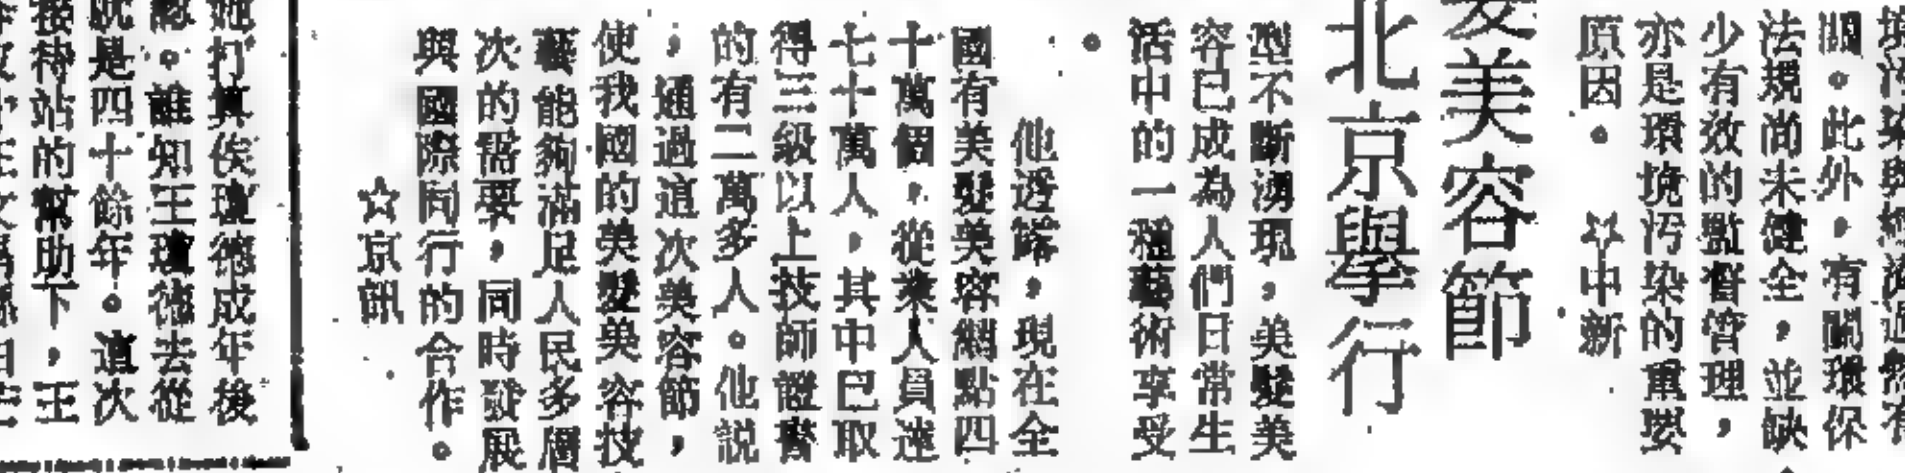 境污染與經濟過熱有
關。此外，有關環保
法規尚未健全，並缺
少有效的監督管理，
亦是環境污染的重要
原因。　☆中新
髮美容節
北京舉行
型不斷湧現，美髮美
容已成為人們日常生
活中的一種藝術享受
。
他透露，現在全
國有美髮美容網點四
十萬個，從業人員達
七十萬人，其中已取
得三級以上技師證書
的有二萬多人。他説
，通過這次美容節，
使我國的美髮美容技
藝能夠滿足人民多層
次的需要，同時發展
與國際同行的合作。
☆京訊
她打真侯瓊德成年後
。誰知王瓊德去從
就是四十餘年。這次
接待站的幫助下，王